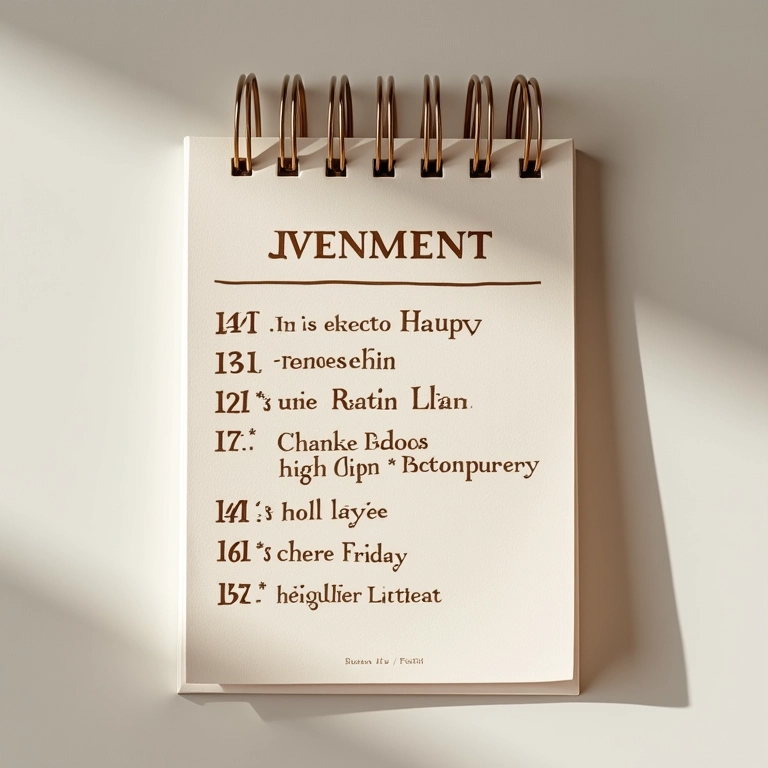 JVENMENT
141 .In is ekecto Haupy
131, -renoesehin
121 *s urie Ratin Llan.
17.:* Chanke Bdoos
high Oipn * Bctonpurery
141 :s holl layee
161 *s chere Friday
157 .* heigullier Littleat